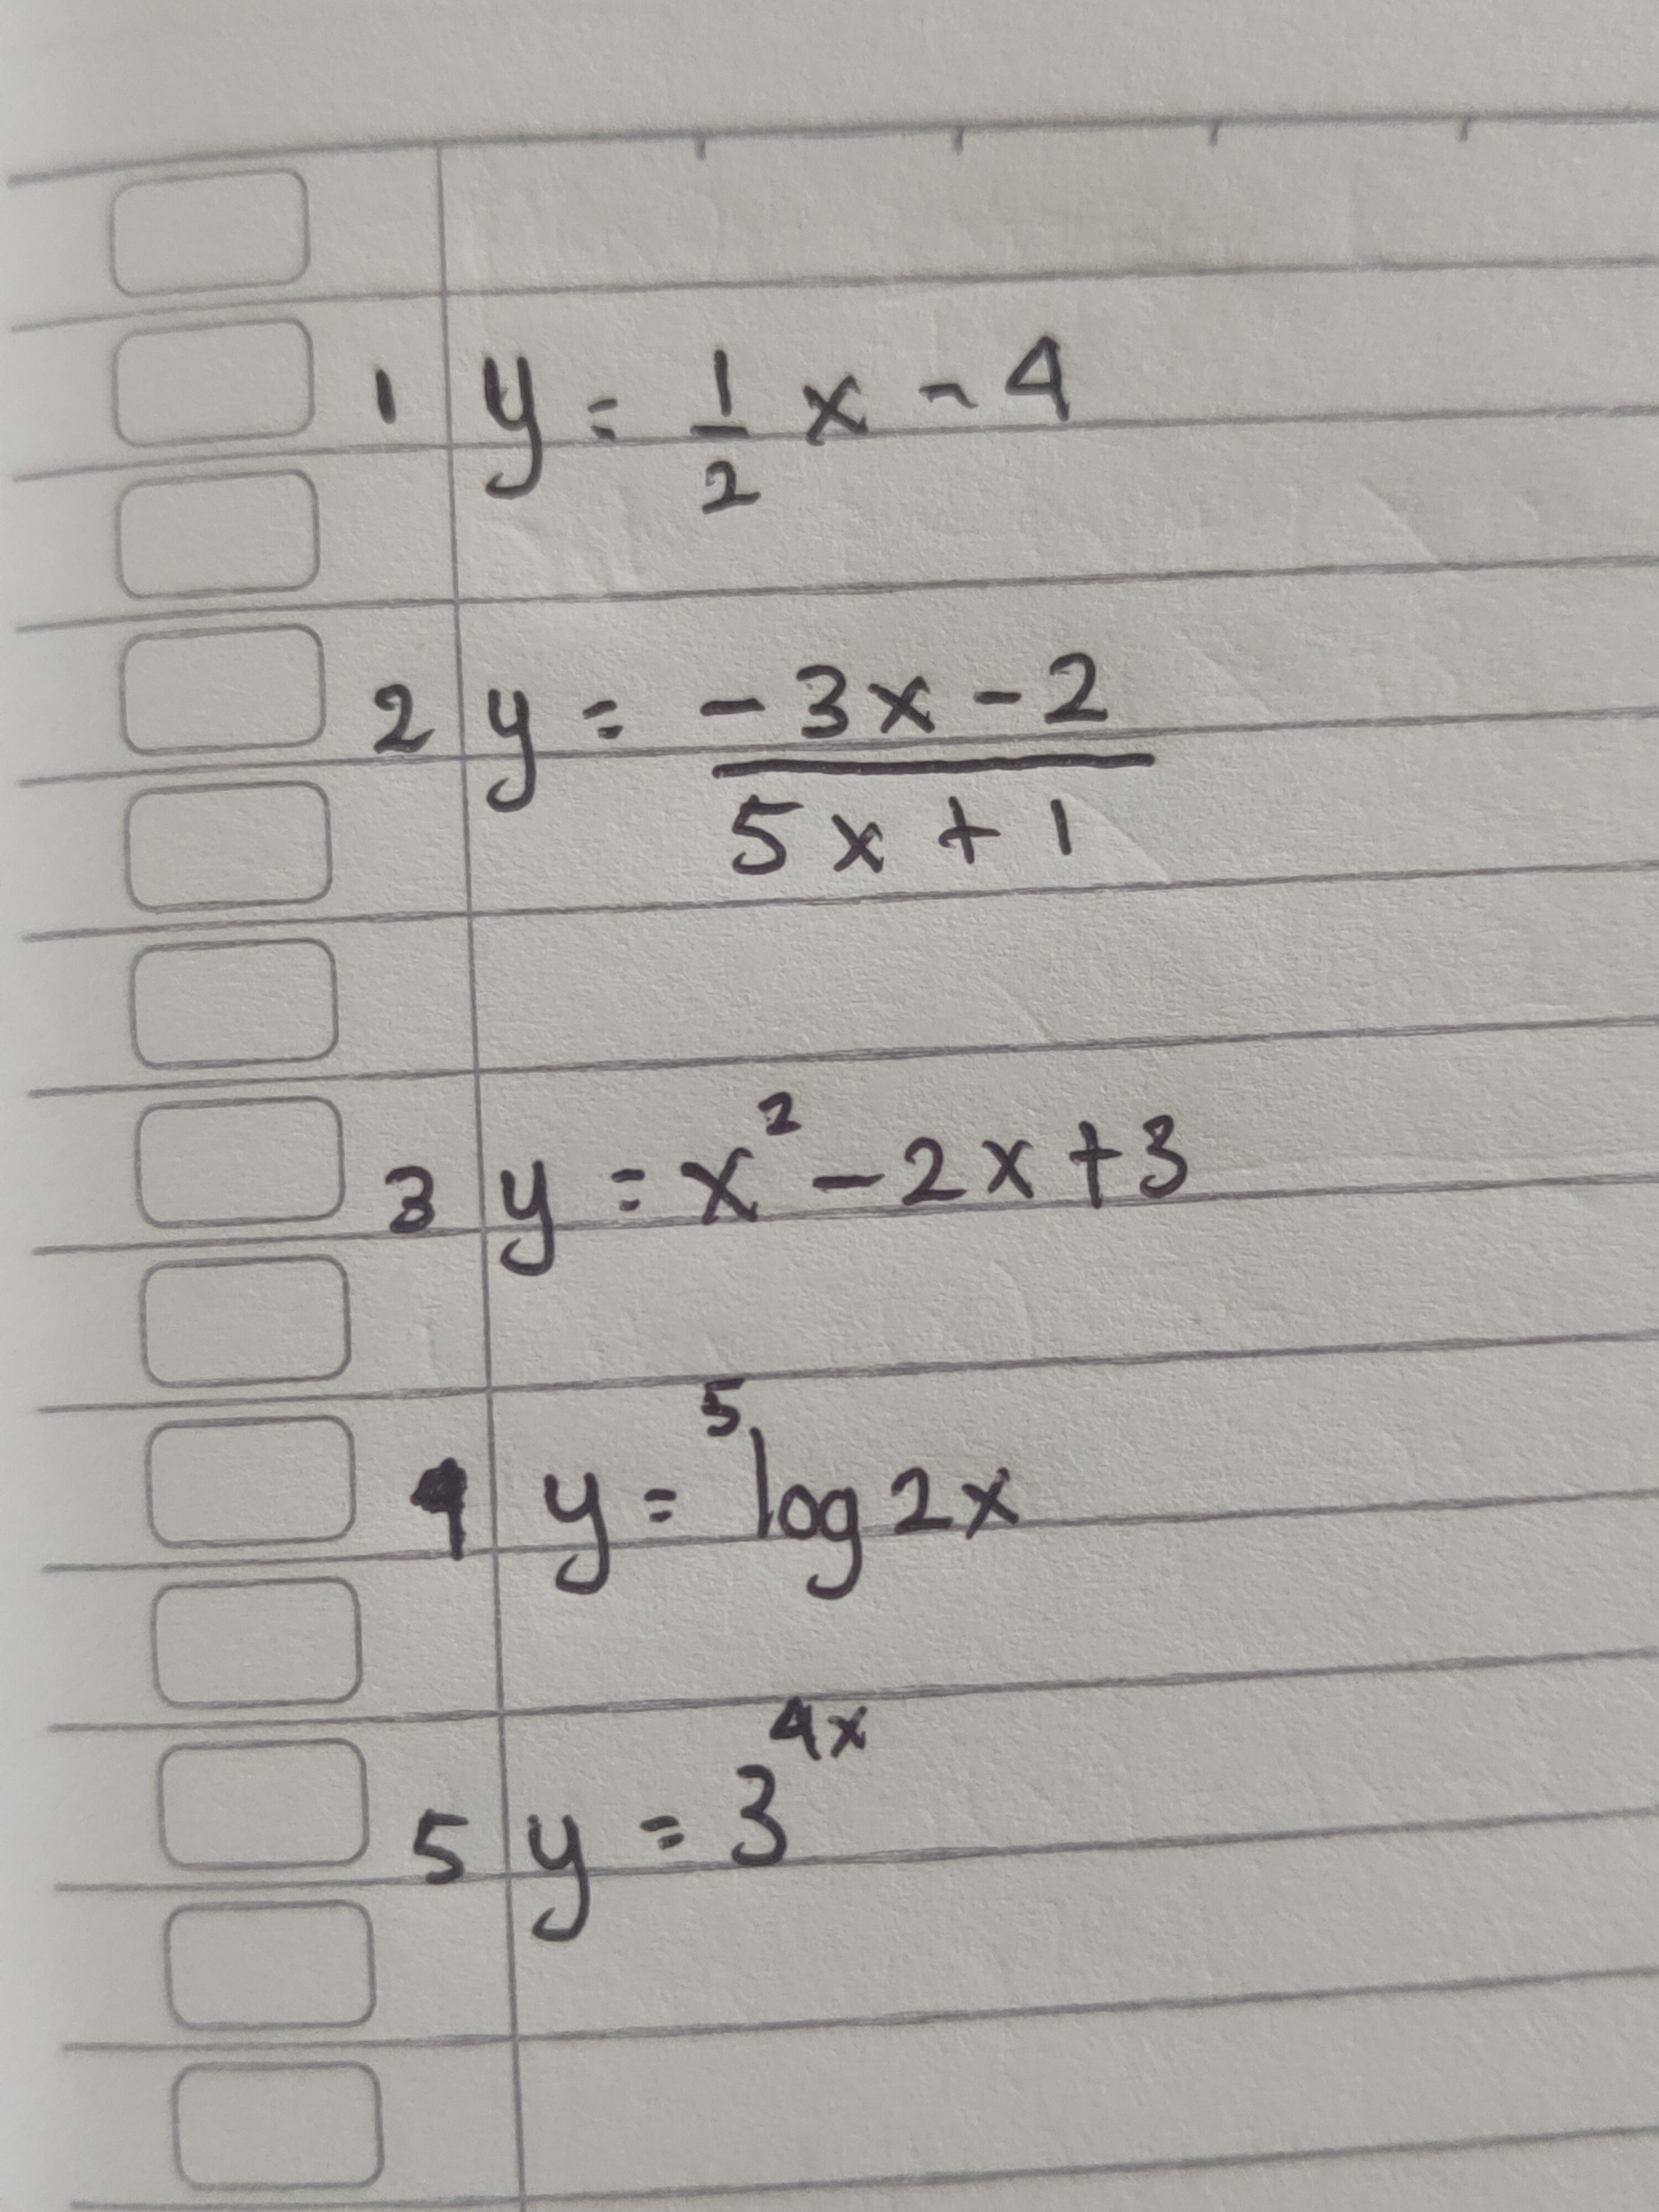 1 y = 1/2 x - 4
2 y = (-3x - 2)/(5x + 1)
3 y = x² - 2x + 3
4 y = ⁵log 2x
5 y = 3⁴ˣ